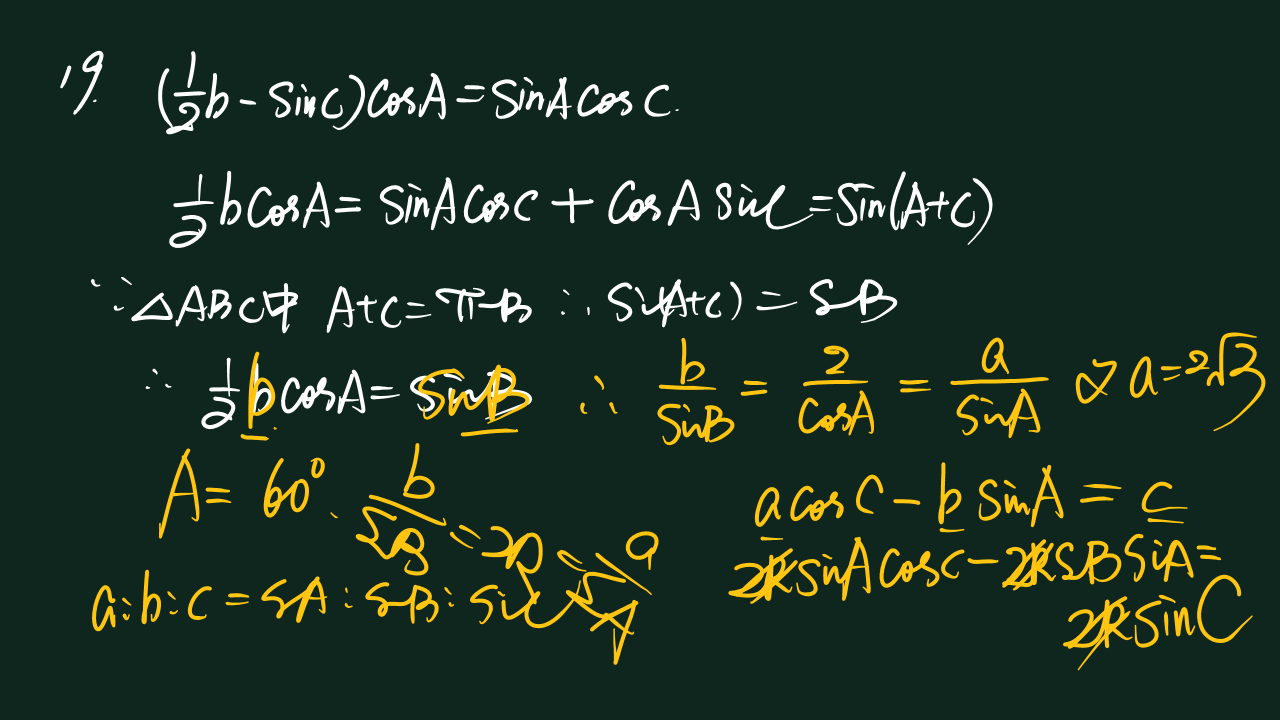 19. (½b - sinC)cosA = sinAcosC.
½bcosA = sinAcosC + cosAsinC = sin(A+C)
∵ △ABC中 A+C=π-B ∴ sin(A+C) = sB
∴ ½bcosA = sinB ∴ b/sinB = 2/cosA = a/sinA 又 a=2√3
A = 60°. b/sB = 2R = a/sA
a:b:c = sA : sB : sinC
acosC - b sinA = c
2RsinAcosC - 2RsBsinA =
2RsinC